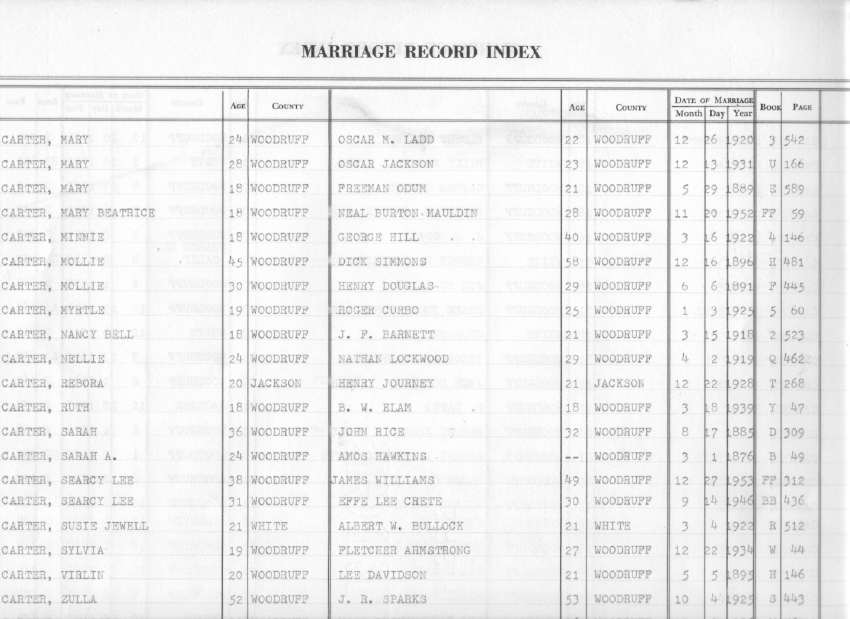 MARRIAGE RECORD INDEX
AGE COUNTY AGE COUNTY DATE OF MARRIAGE BOOK PAGE
Month Day Year
CARTER, MARY 24 WOODRUFF OSCAR M. LADD 22 WOODRUFF 12 26 1920 3 542
CARTER, MARY 28 WOODRUFF OSCAR JACKSON 23 WOODRUFF 12 13 1931 V 166
CARTER, MARY 18 WOODRUFF FREEMAN ODUM 21 WOODRUFF 5 29 1889 E 589
CARTER, MARY BEATRICE 18 WOODRUFF NEAL BURTON MAULDIN 28 WOODRUFF 11 20 1952 FF 59
CARTER, MINNIE 18 WOODRUFF GEORGE HILL 40 WOODRUFF 3 16 1922 4 146
CARTER, MOLLIE 45 WOODRUFF DICK SIMMONS 58 WOODRUFF 12 16 1896 H 481
CARTER, MOLLIE 30 WOODRUFF HENRY DOUGLAS 29 WOODRUFF 6 6 1891 F 445
CARTER, MYRTLE 19 WOODRUFF ROGER CURBO 25 WOODRUFF 1 3 1925 5 60
CARTER, NANCY BELL 18 WOODRUFF J. F. BARNETT 21 WOODRUFF 3 15 1918 2 523
CARTER, NELLIE 24 WOODRUFF NATHAN LOCKWOOD 29 WOODRUFF 4 2 1919 Q 462
CARTER, REBORA 20 JACKSON HENRY JOURNEY 21 JACKSON 12 22 1928 T 268
CARTER, RUTH 18 WOODRUFF B. W. ELAM 18 WOODRUFF 3 18 1939 Y 47
CARTER, SARAH 36 WOODRUFF JOHN RICE 32 WOODRUFF 8 17 1885 D 309
CARTER, SARAH A. 24 WOODRUFF AMOS HAWKINS -- WOODRUFF 3 1 1876 B 49
CARTER, SEARCY LEE 38 WOODRUFF JAMES WILLIAMS 49 WOODRUFF 12 27 1953 FF 312
CARTER, SEARCY LEE 31 WOODRUFF EFFE LEE CRETE 30 WOODRUFF 9 14 1946 BB 436
CARTER, SUSIE JEWELL 21 WHITE ALBERT W. BULLOCK 21 WHITE 3 4 1922 R 512
CARTER, SYLVIA 19 WOODRUFF FLETCHER ARMSTRONG 27 WOODRUFF 12 22 1934 W 44
CARTER, VIRLIN 20 WOODRUFF LEE DAVIDSON 21 WOODRUFF 5 5 1895 H 146
CARTER, ZULLA 52 WOODRUFF J. R. SPARKS 53 WOODRUFF 10 4 1925 S 443